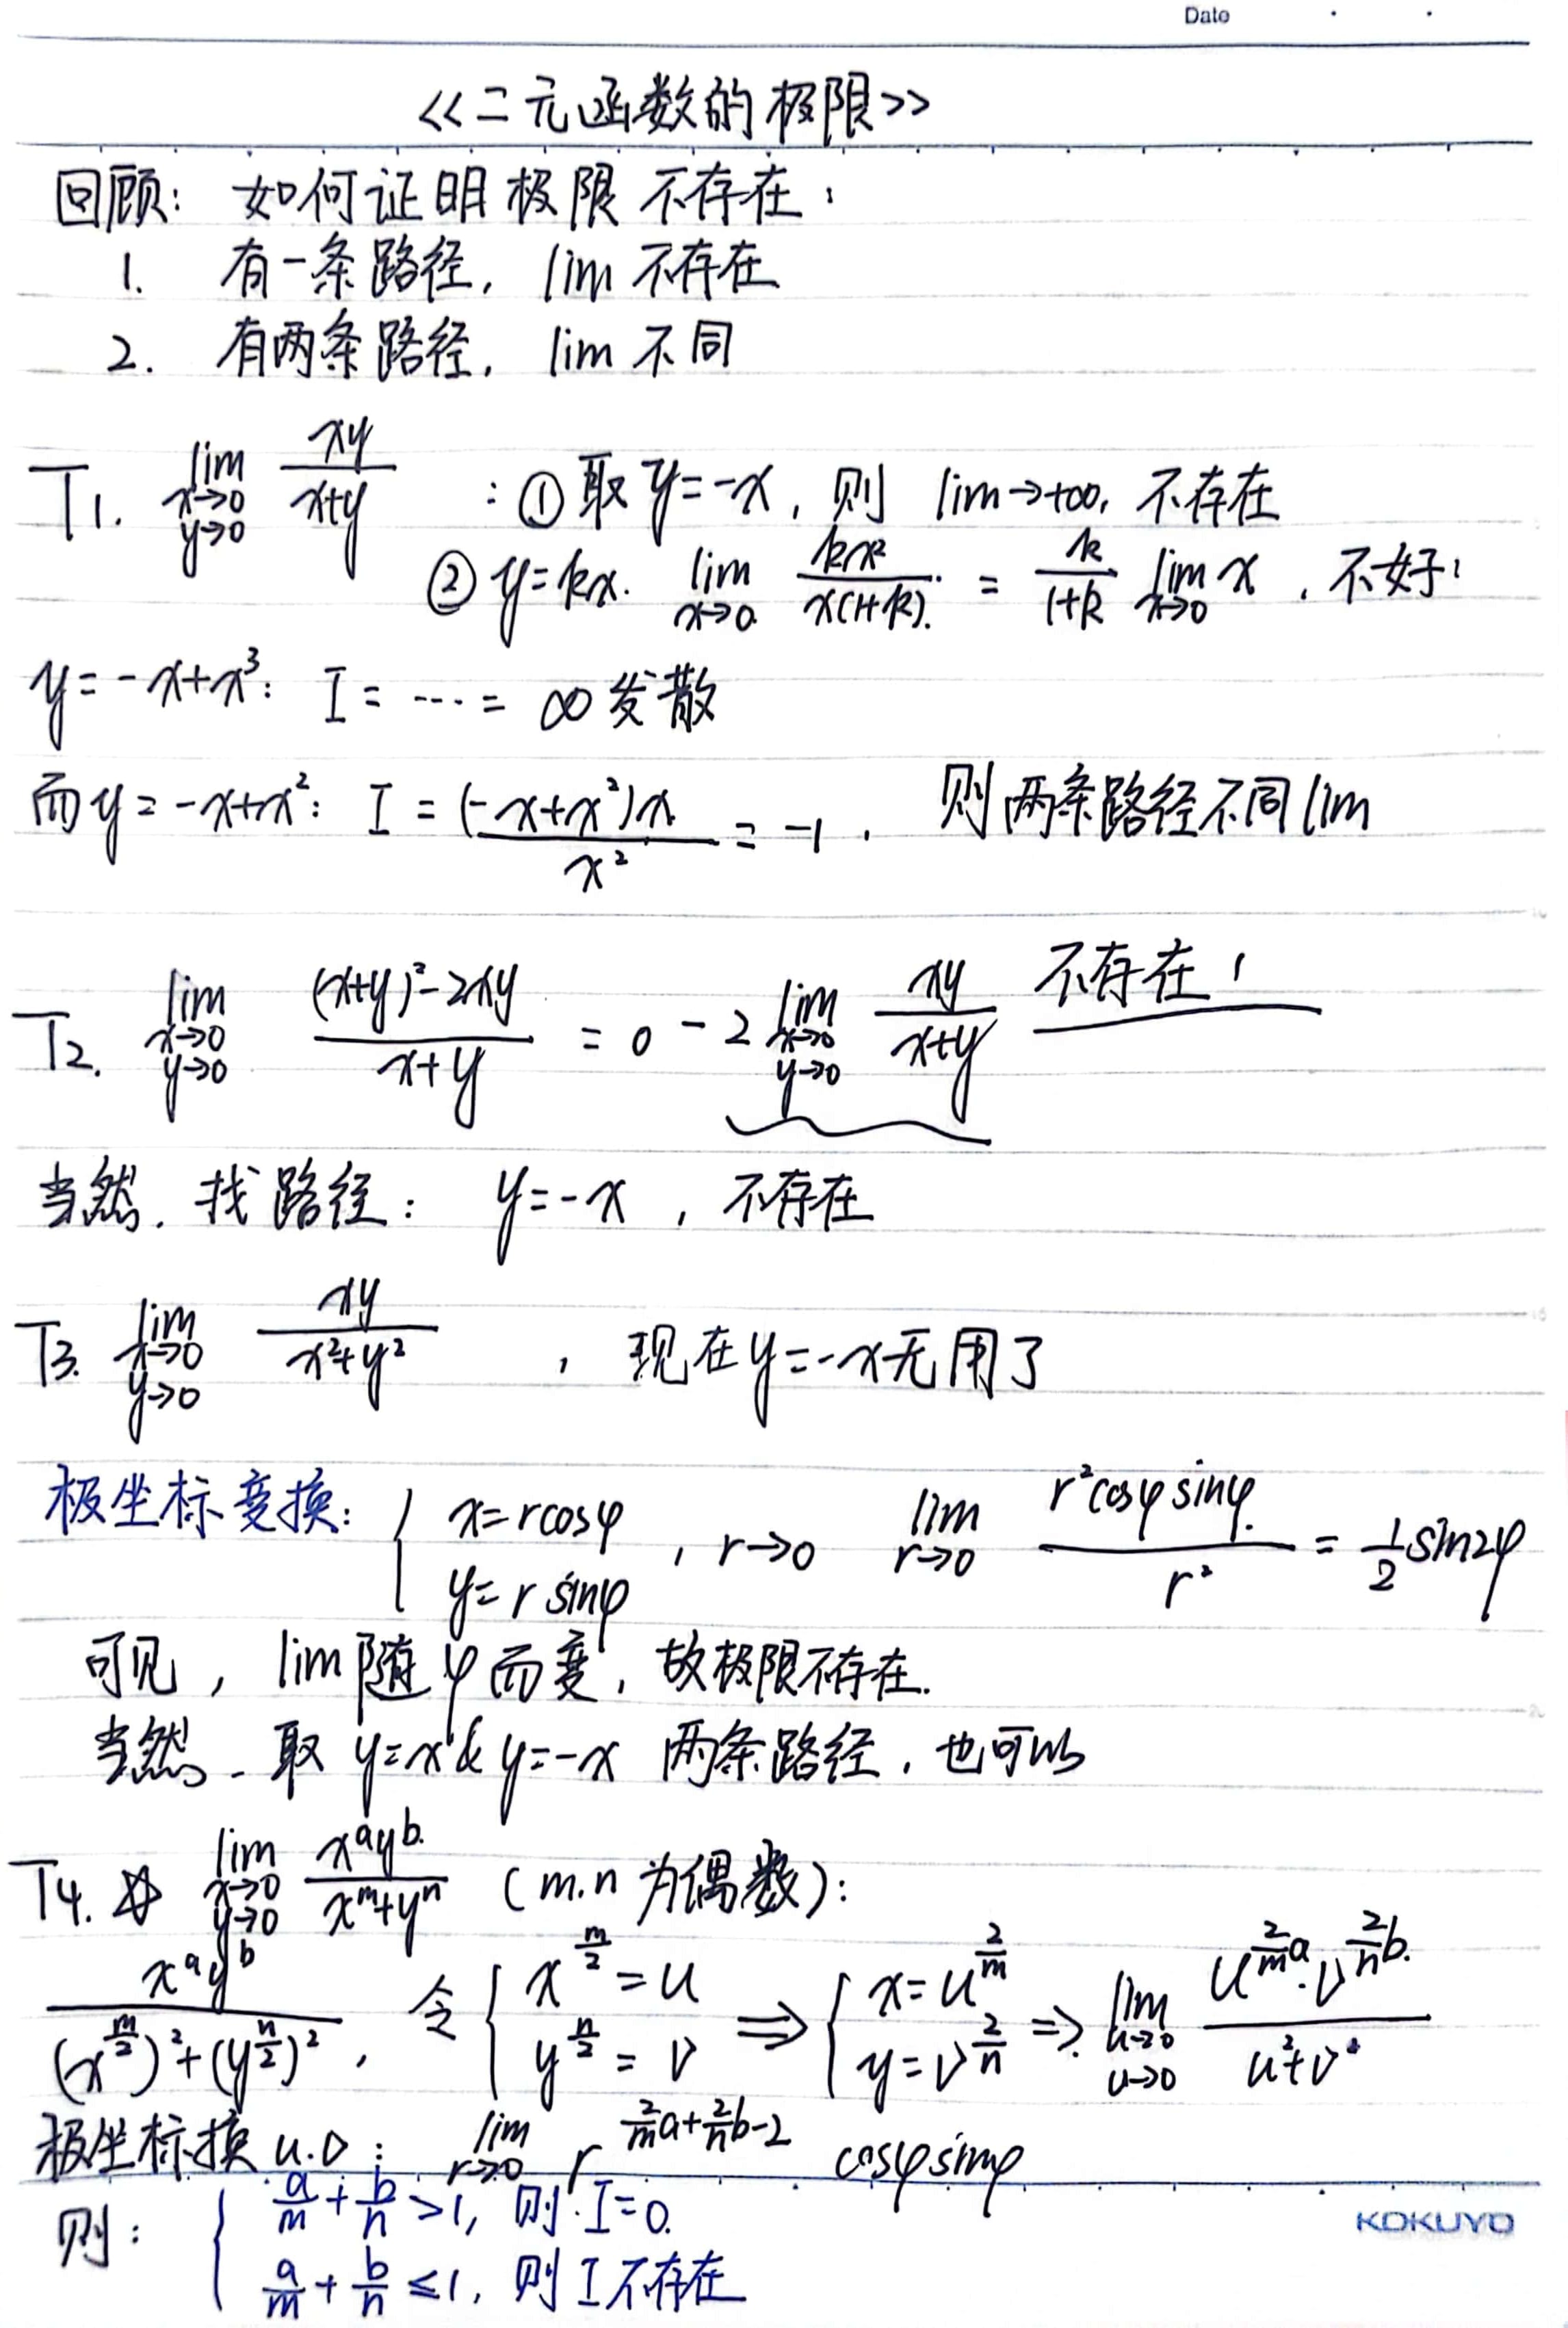 Date
<<二元函数的极限>>
回顾: 如何证明极限不存在:
1. 有一条路径, lim 不存在
2. 有两条路径, lim 不同
T1. lim x→0 y→0 xy/(x+y) : ① 取 y=-x, 则 lim→+∞, 不存在
② y=kx. lim x→0 kx²/(x(1+k)). = k/(1+k) lim x→0 x , 不好!
y=-x+x³: I= ---- = ∞ 发散
而 y=-x+x²: I = (-x+x²)x/x² = -1 , 则两条路径不同 lim
T2. lim x→0 y→0 ((x+y)²-2xy)/(x+y) = 0 - 2 lim x→0 y→0 xy/(x+y) 不存在!
当然, 找路径: y=-x , 不存在
T3. lim x→0 y→0 xy/(x²+y²) , 现在 y=-x 无用了
极坐标变换: { x=rcosφ y=r sinφ , r→0 lim r→0 r²cosφsinφ./r² = 1/2 sin2φ
可见, lim 随 φ 而变, 故极限不存在.
当然 - 取 y=x & y=-x 两条路径, 也可以
T4. lim x→0 y→0 x^a y^b/(x^m+y^n) (m.n 为偶数):
x^a y^b/((x^(m/2))²+(y^(n/2))²) , 令 { x^(m/2) = u y^(n/2) = v ⇒ { x=u^(2/m) y=v^(2/n) ⇒ lim u→0 u→0 u^(2/m a)·v^(2/n b)/(u²+v²)
极坐标换 u.v : lim r→0 r^(2/m a+2/n b-2) cosφsinφ
则: { a/m + b/n >1, 则 I=0.
a/m + b/n ≤1, 则 I 不存在
KOKUYO